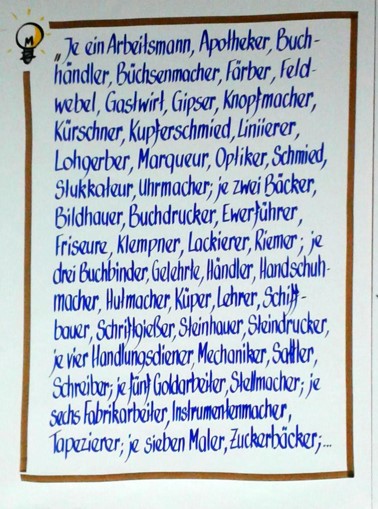 M
„Je ein Arbeitsmann, Apotheker, Buch-
händler, Büchsenmacher, Färber, Feld-
webel, Gastwirt, Gipser, Knopfmacher,
Kürschner, Kupferschmied, Liniierer,
Lohgerber, Marqueur, Optiker, Schmied,
Stukkateur, Uhrmacher; je zwei Bäcker,
Bildhauer, Buchdrucker, Ewerführer,
Friseure, Klempner, Lackierer, Riemer; je
drei Buchbinder, Gelehrte, Händler, Handschuh-
macher, Hutmacher, Küper, Lehrer, Schiff-
bauer, Schriftgießer, Steinhauer, Steindrucker,
je vier Handlungsdiener, Mechaniker, Sattler,
Schreiber; je fünf Goldarbeiter, Stellmacher; je
sechs Fabrikarbeiter, Instrumentenmacher,
Tapezierer; je sieben Maler, Zuckerbäcker;...